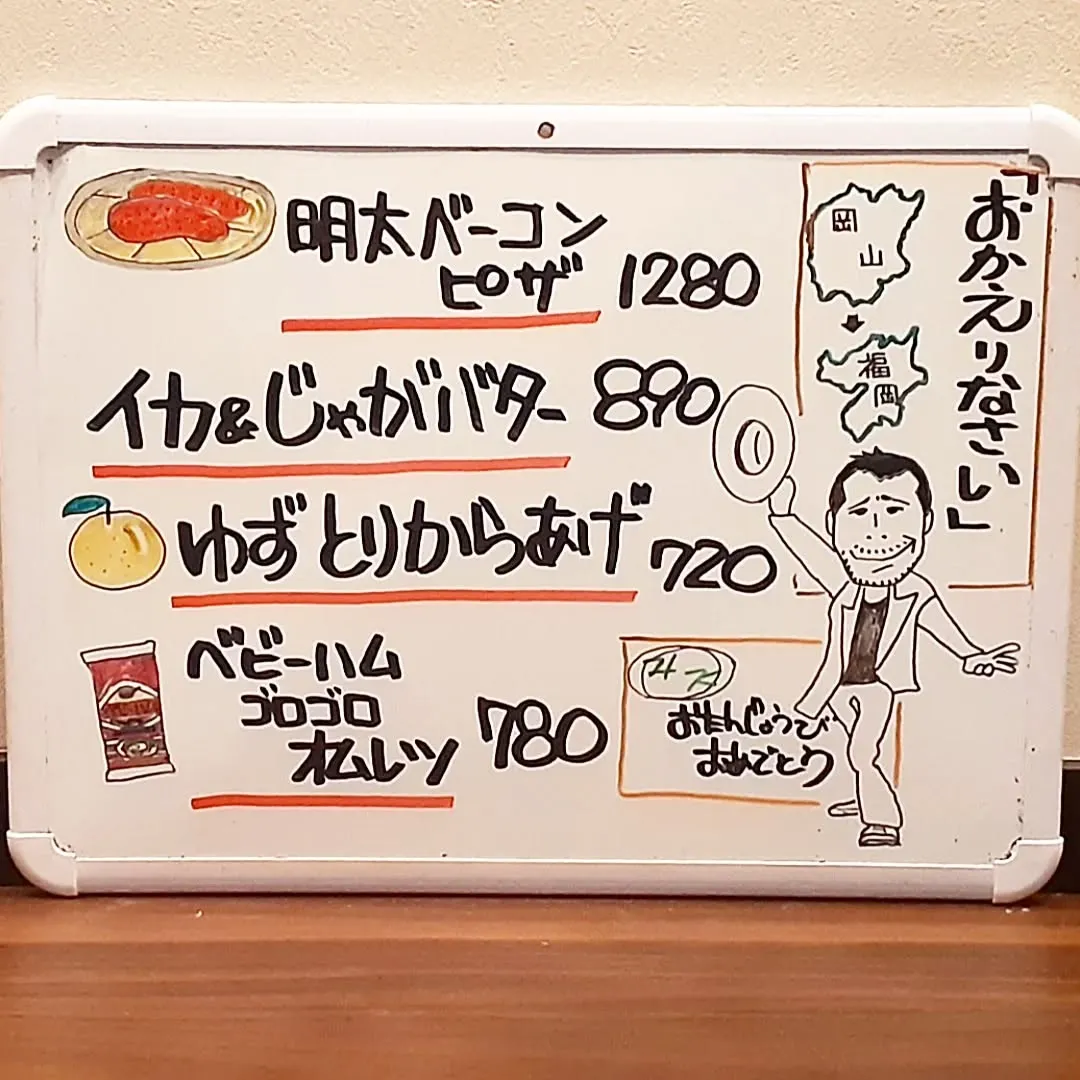 明太ベーコン
ピザ 1280
イカ&じゃがバター 890
ゆずとりからあげ 720
ベビーハム
ゴロゴロ
オムレツ 780
「おかえりなさい」
岡山
福岡
おたんじょうび
おめでとう